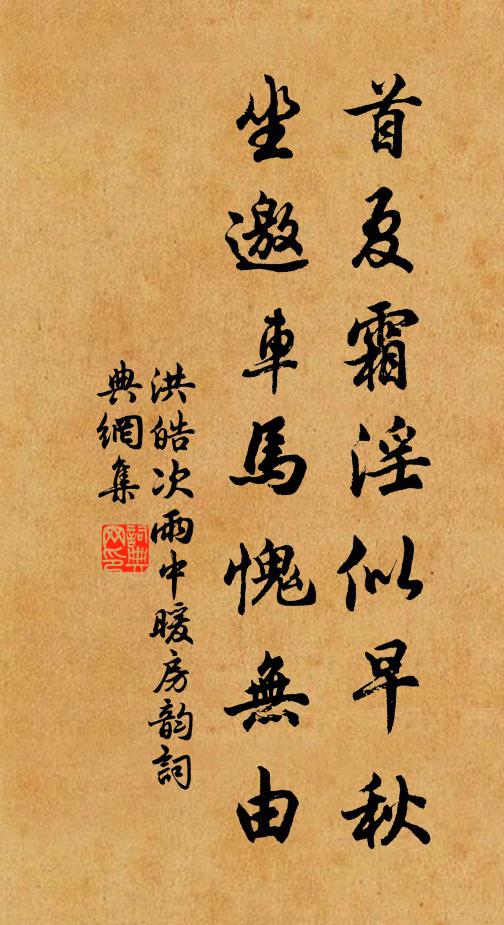 首夏霜淫似早秋
坐邀車馬愧無由
洪皓次雨中暖房韵詞
典網集
詞典
网印